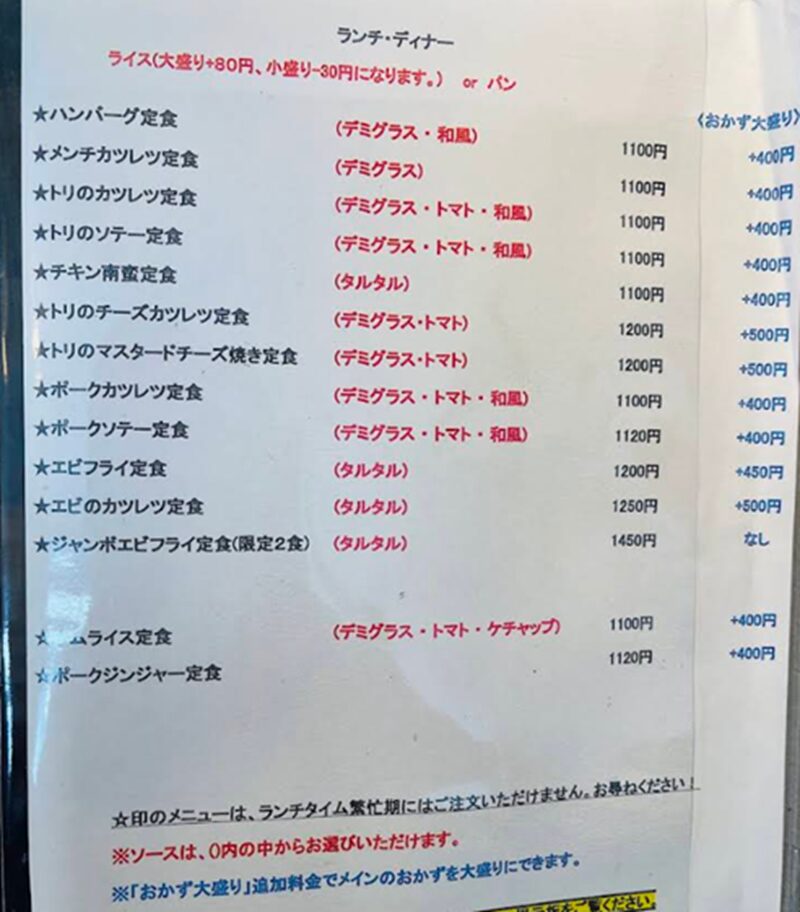 ランチ・ディナー
ライス(大盛り+80円、小盛り-30円になります。) or パン
〈おかず大盛り〉
★ハンバーグ定食 (デミグラス・和風) 1100円 +400円
★メンチカツレツ定食 (デミグラス) 1100円 +400円
★トリのカツレツ定食 (デミグラス・トマト・和風) 1100円 +400円
★トリのソテー定食 (デミグラス・トマト・和風) 1100円 +400円
★チキン南蛮定食 (タルタル) 1100円 +400円
★トリのチーズカツレツ定食 (デミグラス・トマト) 1200円 +500円
★トリのマスタードチーズ焼き定食 (デミグラス・トマト) 1200円 +500円
★ポークカツレツ定食 (デミグラス・トマト・和風) 1100円 +400円
★ポークソテー定食 (デミグラス・トマト・和風) 1120円 +400円
★エビフライ定食 (タルタル) 1200円 +450円
★エビのカツレツ定食 (タルタル) 1250円 +500円
★ジャンボエビフライ定食(限定2食) (タルタル) 1450円 なし
☆ムライス定食 (デミグラス・トマト・ケチャップ) 1100円 +400円
☆ポークジンジャー定食 1120円 +400円
☆印のメニューは、ランチタイム繁忙期にはご注文いただけません。お尋ねください！
※ソースは、()内の中からお選びいただけます。
※「おかず大盛り」追加料金でメインのおかずを大盛りにできます。
をご覧ください。